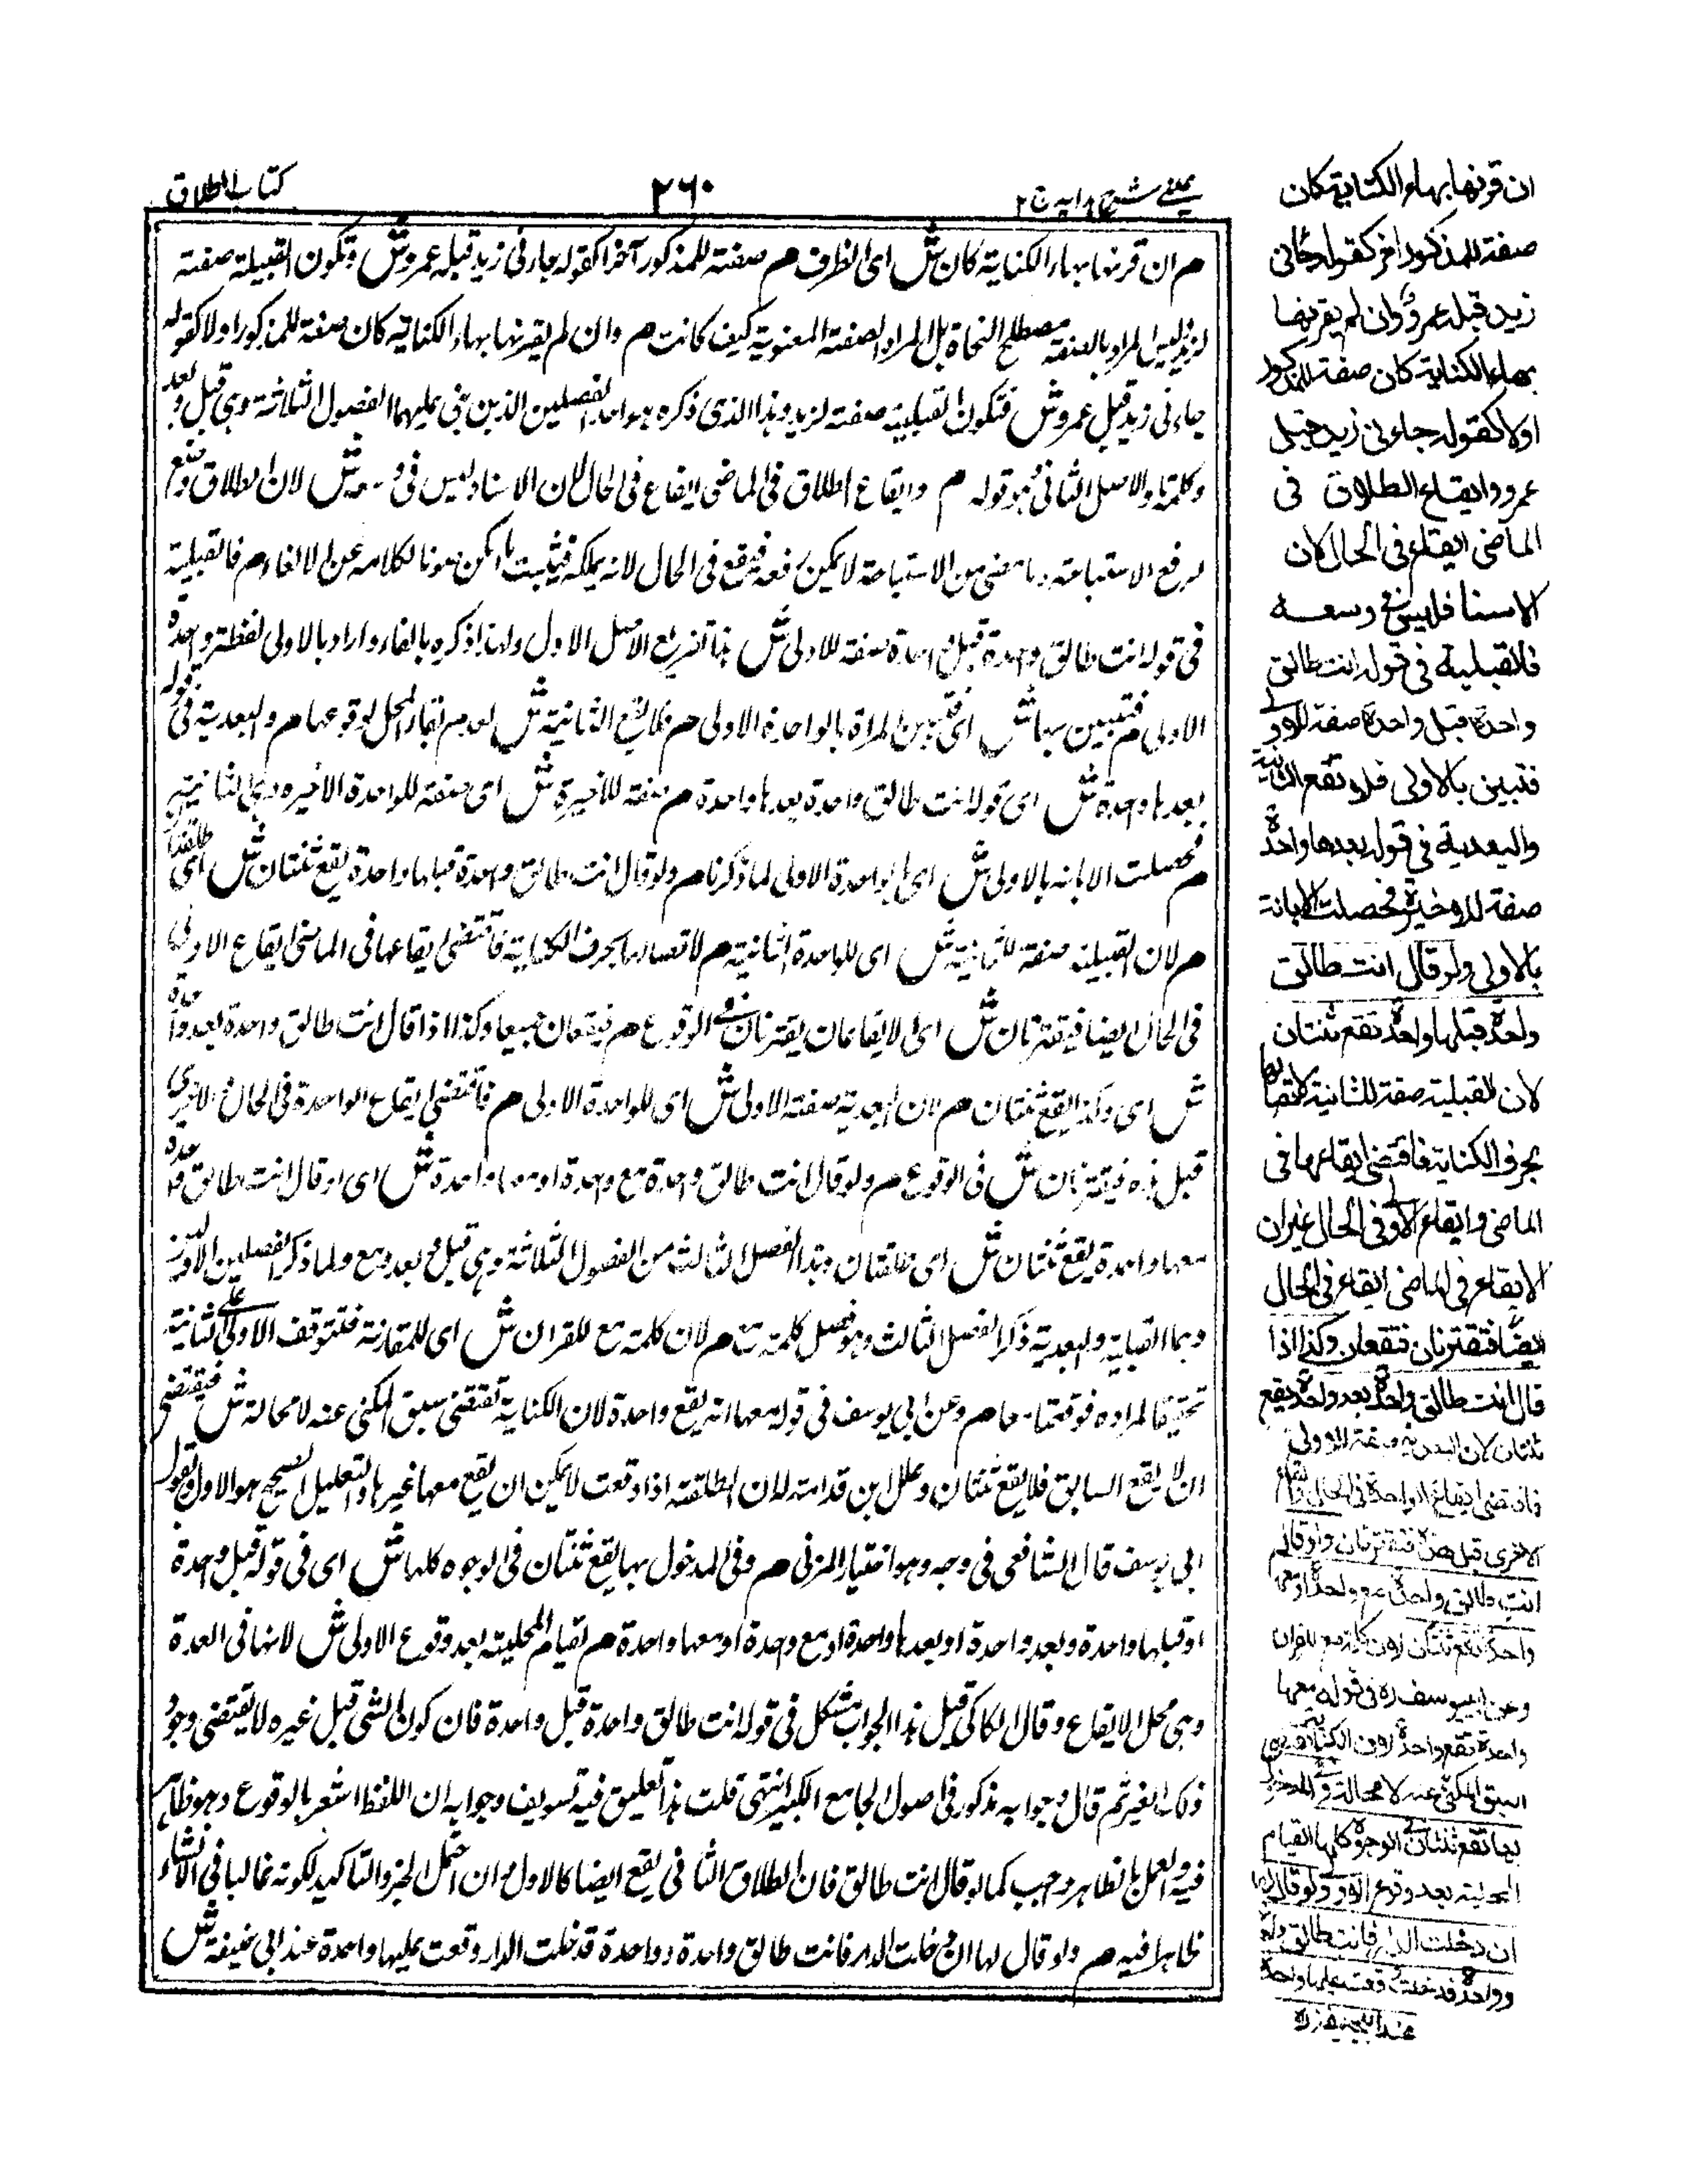 عینی شرح ہدایہ ج ۲
۲۶۰
کتاب الطلاق
م ان قرنها بهاء الكناية كان ش اى الظرف م صفة للمذكور آخرا كقوله جاءنى زيد قبله عمرو ش وتكون القبيلة صفة
لزيد وليس المراد بالصفة مصطلح النحاة بل المراد الصفة المعنوية كيف كانت م وان لم يقرنها بهاء الكناية كان صفة للمذكور اولا كقوله
جاءنى زيد قبل عمرو ش فتكون القبلية صفة لزيد وهذا الذى ذكره هو احد الفصلين الذين بنى عليهما الفصول الثلاثة وهى قبل وبعد
وكلمة والاصل الثانى هو قوله م وايقاع الطلاق فى الماضى ايقاع فى الحال لان الاسناد ليس فى وسعه ش لان الطلاق وضع
لرفع الاستباحة وما مضى من الاستباحة لا يمكن رفعه فيقع فى الحال لانه يملكه فيثبت ما يمكن صونا لكلامه عن الالغاء م فالقبلية
فى قوله انت طالق واحدة قبل واحدة صفة للاولى ش هذا تفريع الاصل الاول ولهذا ذكره بالفاء واراد بالاولى لفظة واحدة
الاولى م فتبين بها ش اى فتبين المرأة بالواحدة الاولى م فلا يقع الثانية ش لعدم بقاء المحل لوقوعها م والبعدية فى قوله
بعدها واحدة ش اى قوله انت طالق واحدة بعدها واحدة م صفة للاخيرة ش اى صفة للواحدة الاخيرة وهى الثانية
م فحصلت الابانة بالاولى ش اى بالواحدة الاولى لما ذكرنا م ولو قال انت طالق واحدة قبلها واحدة يقع ثنتان ش اى طلقتان
م لان القبلية صفة للثانية ش اى للواحدة الثانية م لاتصالها بحرف الكناية فاقتضى ايقاعها فى الماضى ايقاع الاولى
فى الحال ايضا فيقترنان ش اى الايقاعان يقترنان فى الوقوع م فيقعان جميعا وكذا اذا قال انت طالق واحدة بعد واحدة
ش اى وكذا يقع ثنتان م لان البعدية صفة الاولى ش اى للواحدة الاولى م فاقتضى ايقاع الواحدة فى الحال الاخرى
قبل هذه فيقترنان ش فى الوقوع م ولو قال انت طالق واحدة مع واحدة او معها واحدة ش اى او قال انت طالق واحدة
معها واحدة يقع ثنتان ش اى طلقتان وهذا الفصل الثالث من الفصول الثلاثة وهى قبل وبعد ومع ولما ذكر الفصلين الاولين
وهما القبلية والبعدية ذكر الفصل الثالث وهو فصل كلمة مع م لان كلمة مع للقران ش اى للمقارنة فتتوقف الاولى على الثانية
تحقيقا لمراده فوقعتا معا م وعن ابى يوسف فى قوله معها انه يقع واحدة لان الكناية تقتضى سبق المكنى عنه لا محالة ش فيقتضى
ان لا يقع السابق فلا يقع ثنتان وعلل ابن قدامة لان الطلقة اذا وقعت لا يمكن ان يقع معها غيرها والتعليل الصحيح هو الاول وبقول
ابى يوسف قال الشافعى فى وجه وهو اختيار المزنى م وفى المدخول بها يقع ثنتان فى الوجوه كلها ش اى فى قوله قبل واحدة
او قبلها واحدة وبعد واحدة او بعدها واحدة او مع واحدة او معها واحدة م لقيام المحلية بعد وقوع الاولى ش لانها فى العدة
وهى محل الايقاع وقال الكاكى قيل هذا الجواب مشكل فى قوله انت طالق واحدة قبل واحدة فان كون الشى قبل غيره لا يقتضى وجود
ذلك الغير ثم قال وجوابه مذكور فى اصول الجامع الكبير انتهى قلت هذا تعليق فيه تسويف وجوابه ان اللفظ اشعر بالوقوع وهو ظاهر
فيه والعمل بالظاهر وجب كما لو قال انت طالق فان الطلاق الثانى يقع ايضا كالاول وان احتمل الخبر والتاكيد لكونه غالبا فى الانشاء
ظاهرا فيه م ولو قال لها ان دخلت الدار فانت طالق واحدة وواحدة فدخلت الدار وقعت عليها واحدة عند ابى حنيفة ش
ان قرنها بهاء الكناية كان
صفة للمذكور اخرا كقوله جاءنى
زيد قبله عمرو وان لم يقرنها
بهاء الكناية كان صفة للمذكور
اولا كقوله جاءنى زيد قبل
عمرو وايقاع الطلاق فى
الماضى ايقاع فى الحال لان
الاسناد ليس فى وسعه
فالقبلية فى قوله انت طالق
واحدة قبل واحدة صفة للاولى
فتبين بالاولى فلا تقع الثانية
والبعدية فى قوله بعدها واحدة
صفة للاخيرة فحصلت الابانة
بالاولى ولو قال انت طالق
واحدة قبلها واحدة تقع ثنتان
لان القبلية صفة للثانية لاتصالها
بحرف الكناية فاقتضى ايقاعها فى
الماضى وايقاع الاولى فى الحال غير ان
الايقاع فى الماضى ايقاع فى الحال
ايضا فتقترنان فتقعان وكذا اذا
قال انت طالق واحدة بعد واحدة يقع
ثنتان لان البعدية صفة للاولى
فاقتضى ايقاع الواحدة فى الحال وايقاع
الاخرى قبل هذه فتقترنان ولو قال
انت طالق واحدة مع واحدة او معها
واحدة تقع ثنتان لان كلمة مع للقران
وعن ابى يوسف ره فى قوله معها
واحدة تقع واحدة لان الكناية تقتضى
سبق المكنى عنه لا محالة وفى المدخول
بها تقع ثنتان فى الوجوه كلها لقيام
المحلية بعد وقوع الاولى ولو قال لها
ان دخلت الدار فانت طالق واحدة
وواحدة فدخلت وقعت عليها واحدة
عند ابى حنيفة ره